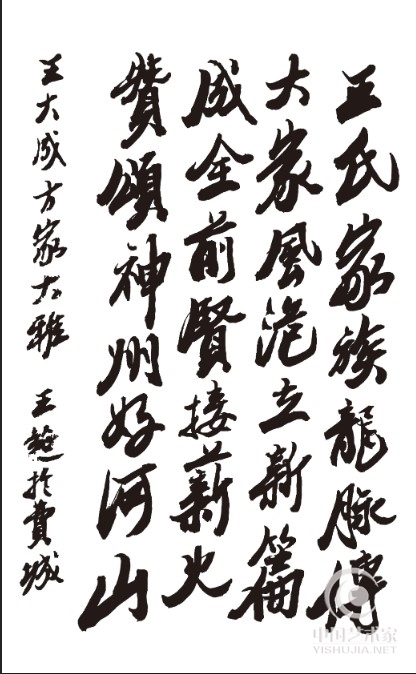 王氏家族龍脉傳
大家風范立新篇
成全前賢接薪火
贊頌神州好河山
王大成方家大雅 王於費城
中国艺术家
YISHUJIA.NET